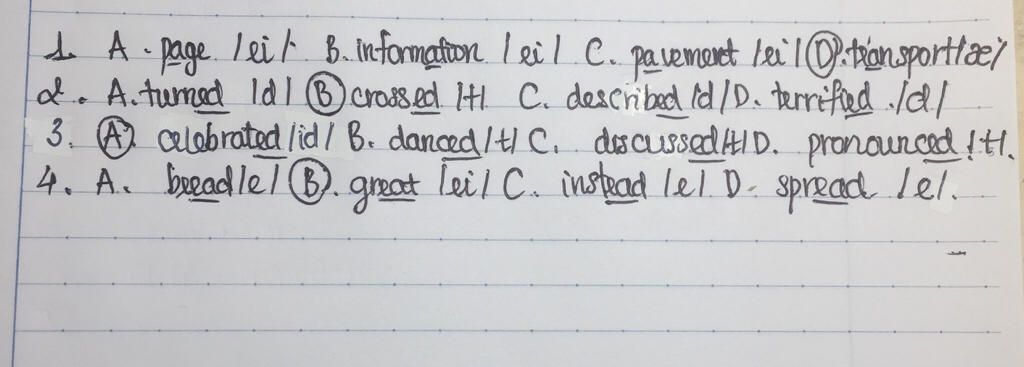 1. A. page /ei/. B. information /ei/ C. pavement /ei/ D. transport /æ/
2. A. turned /d/ B. crossed /t/ C. described /d/ D. terrified ./d/
3. A. celebrated /id/ B. danced /t/ C. discussed /t/ D. pronounced /t/.
4. A. bread /e/ B. great /ei/ C. instead /e/ D. spread /e/.